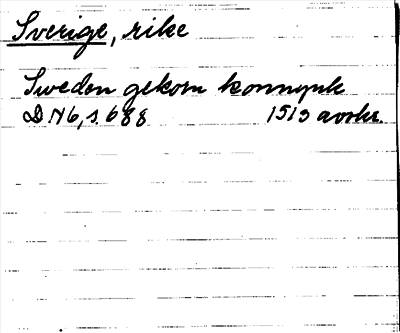 Sverige, rike
Sweden gekorn konnynk
DN 6, s. 688 1513 avskr.